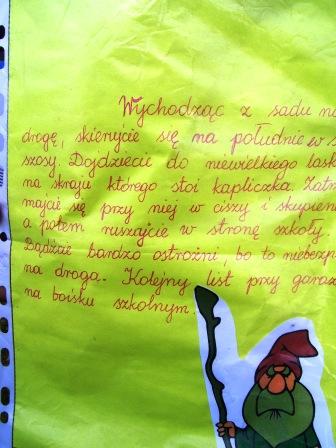 Wychodząc z sadu na
drogę, skierujcie się na południe w s
szosy. Dojdziecie do niewielkiego lask
na skraju którego stoi kapliczka. Zatrz
majcie się przy niej w ciszy i skupieni
a potem ruszajcie w stronę szkoły.
Bądźcie bardzo ostrożni, bo to niebezp
na droga. Kolejny list przy garaż
na boisku szkolnym.